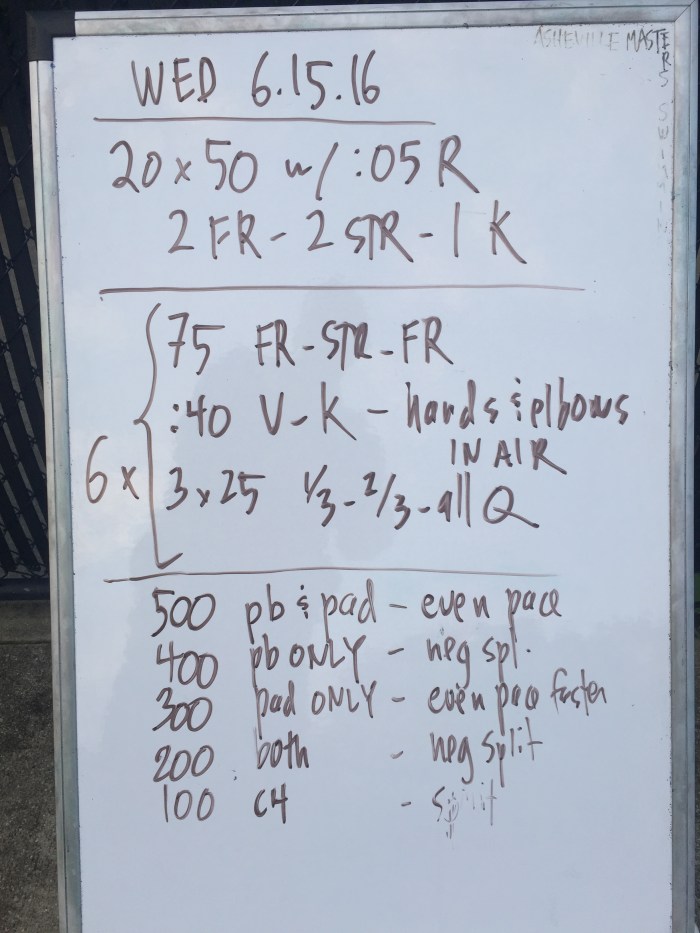 ASHEVILLE MASTERS SWIMMIN
WED 6.15.16
20 x 50 w/ :05 R
2 FR - 2 STR - 1 K
75 FR - STR - FR
:40 V-K - hands & elbows
IN AIR
6 x
3 x 25 1/3 - 2/3 - all Q
500 pb & pad - even pace
400 pb ONLY - neg spl.
300 pad ONLY - even pace faster
200 both - neg split
100 CH -